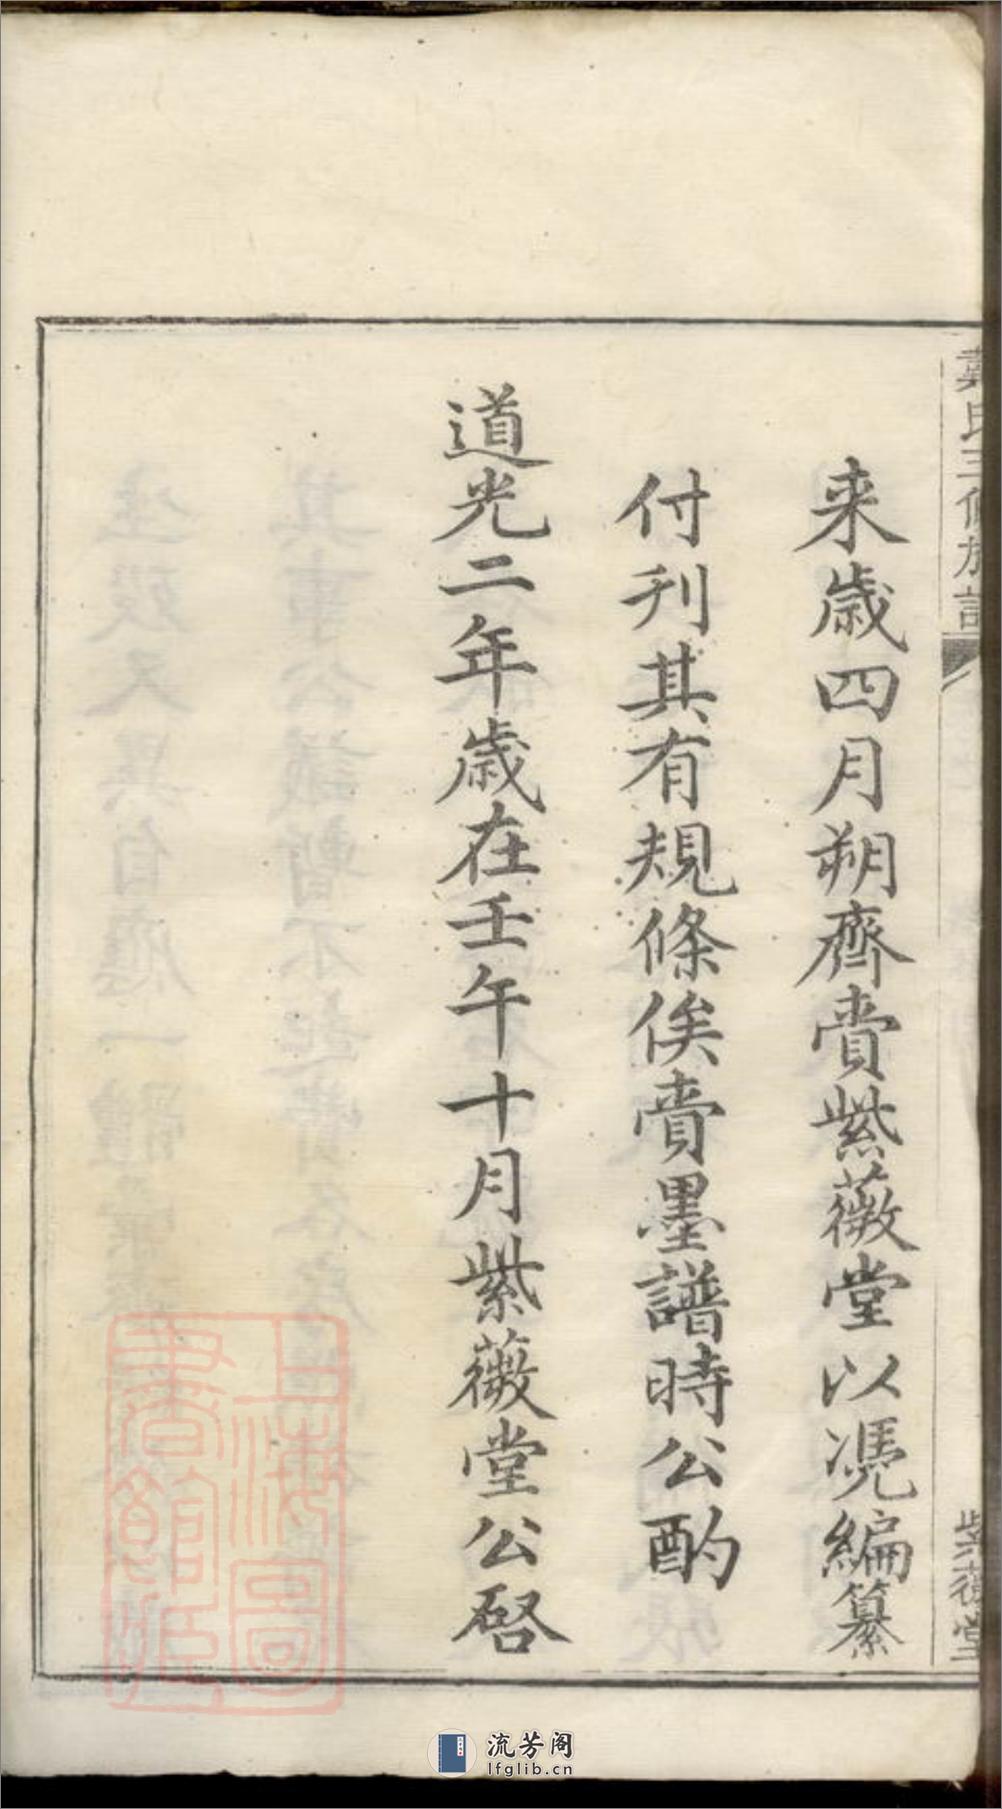 戴氏三修族譜
紫薇堂
来歲四月朔齊賫紫薇堂以凴編纂
付刋其有規條俟賫墨譜時公酌
道光二年歲在壬午十月紫薇堂公啓
上海圖書館藏
流芳阁
lfglib.cn